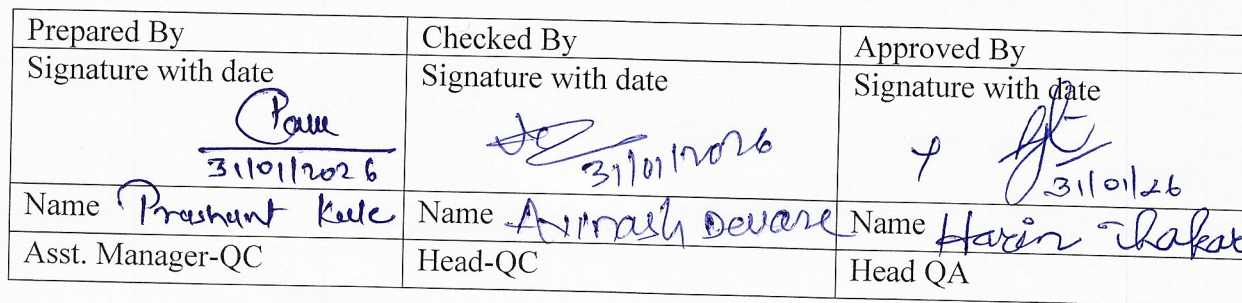 Prepared By
Checked By
Approved By
Signature with date
Signature with date
Signature with date
31/01/2026
31/01/2026
31/01/26
Name Prashant Kule
Name Avinash Devare
Name Harin Thakar
Asst. Manager-QC
Head-QC
Head QA